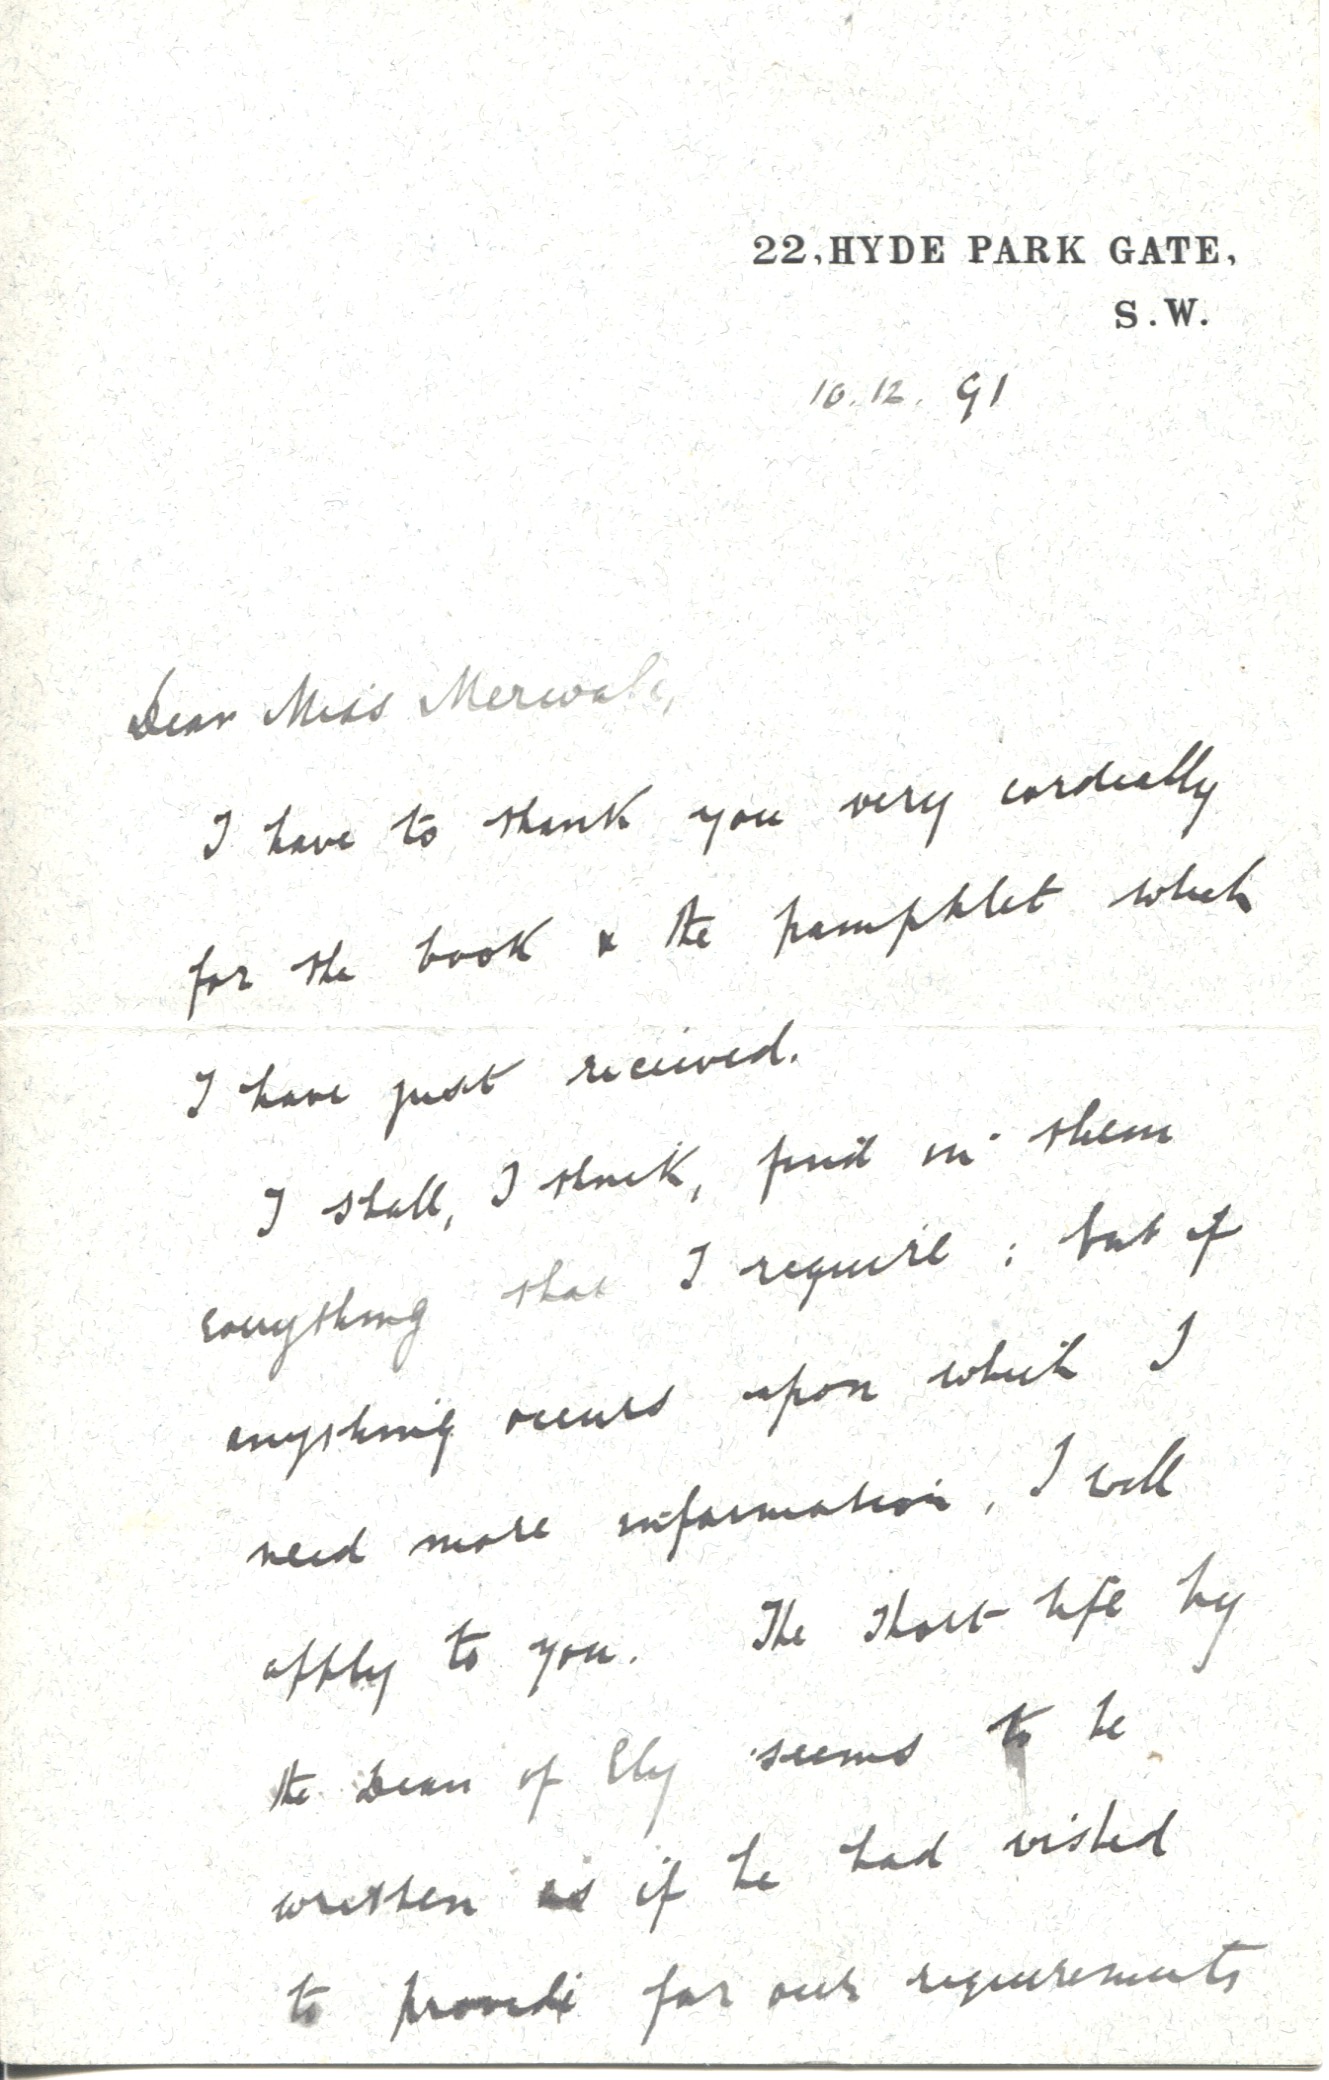 22, HYDE PARK GATE,
S.W.
10.12.91
Dear Miss Merivale,
I have to thank you very cordially
for the book & the pamphlet which
I have just received.
I shall, I think, find in them
everything that I require; but if
anything occurs upon which I
need more information, I will
apply to you. The short life by
the Dean of Ely seems to be
written as if he had wished
to provide for our requirements